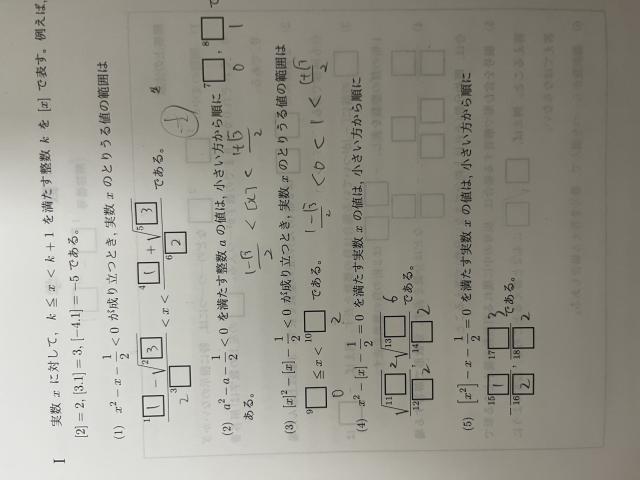 I 実数 x に対して, k ≦ x < k + 1 を満たす整数 k を [x] で表す。例えば,
[2] = 2, [3.1] = 3, [-4.1] = -5 である。
(1) x² - x - 1/2 < 0 が成り立つとき, 実数 x のとりうる値の範囲は
(1 1 - √2 3) / 3 2 < x < (4 1 + √5 3) / 6 2 である。
(2) a² - a - 1/2 < 0 を満たす整数 a の値は, 小さい方から順に 7 0, 8 1 で
ある。
1-√3/2 < [x] < 1+√3/2
(3) [x]² - [x] - 1/2 < 0 が成り立つとき, 実数 x のとりうる値の範囲は
9 0 ≦ x < 10 2 である。
1-√3/2 < 0 < 1 < 1+√3/2
(4) x² - [x] - 1/2 = 0 を満たす実数 x の値は, 小さい方から順に
√11 2 / 12 2, √13 6 / 14 2 である。
(5) [x²] - x - 1/2 = 0 を満たす実数 x の値は, 小さい方から順に
- 15 1 / 16 2, 17 3 / 18 2 である。